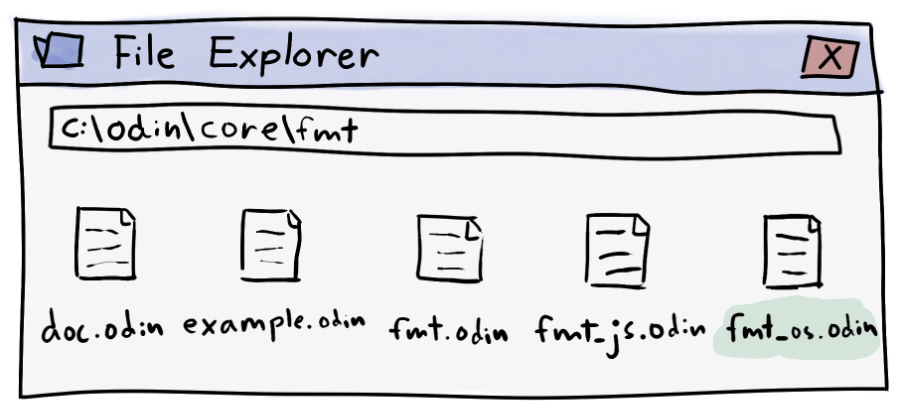 File Explorer X
C:\odin\core\fmt
doc.odin example.odin fmt.odin fmt_js.odin fmt_os.odin